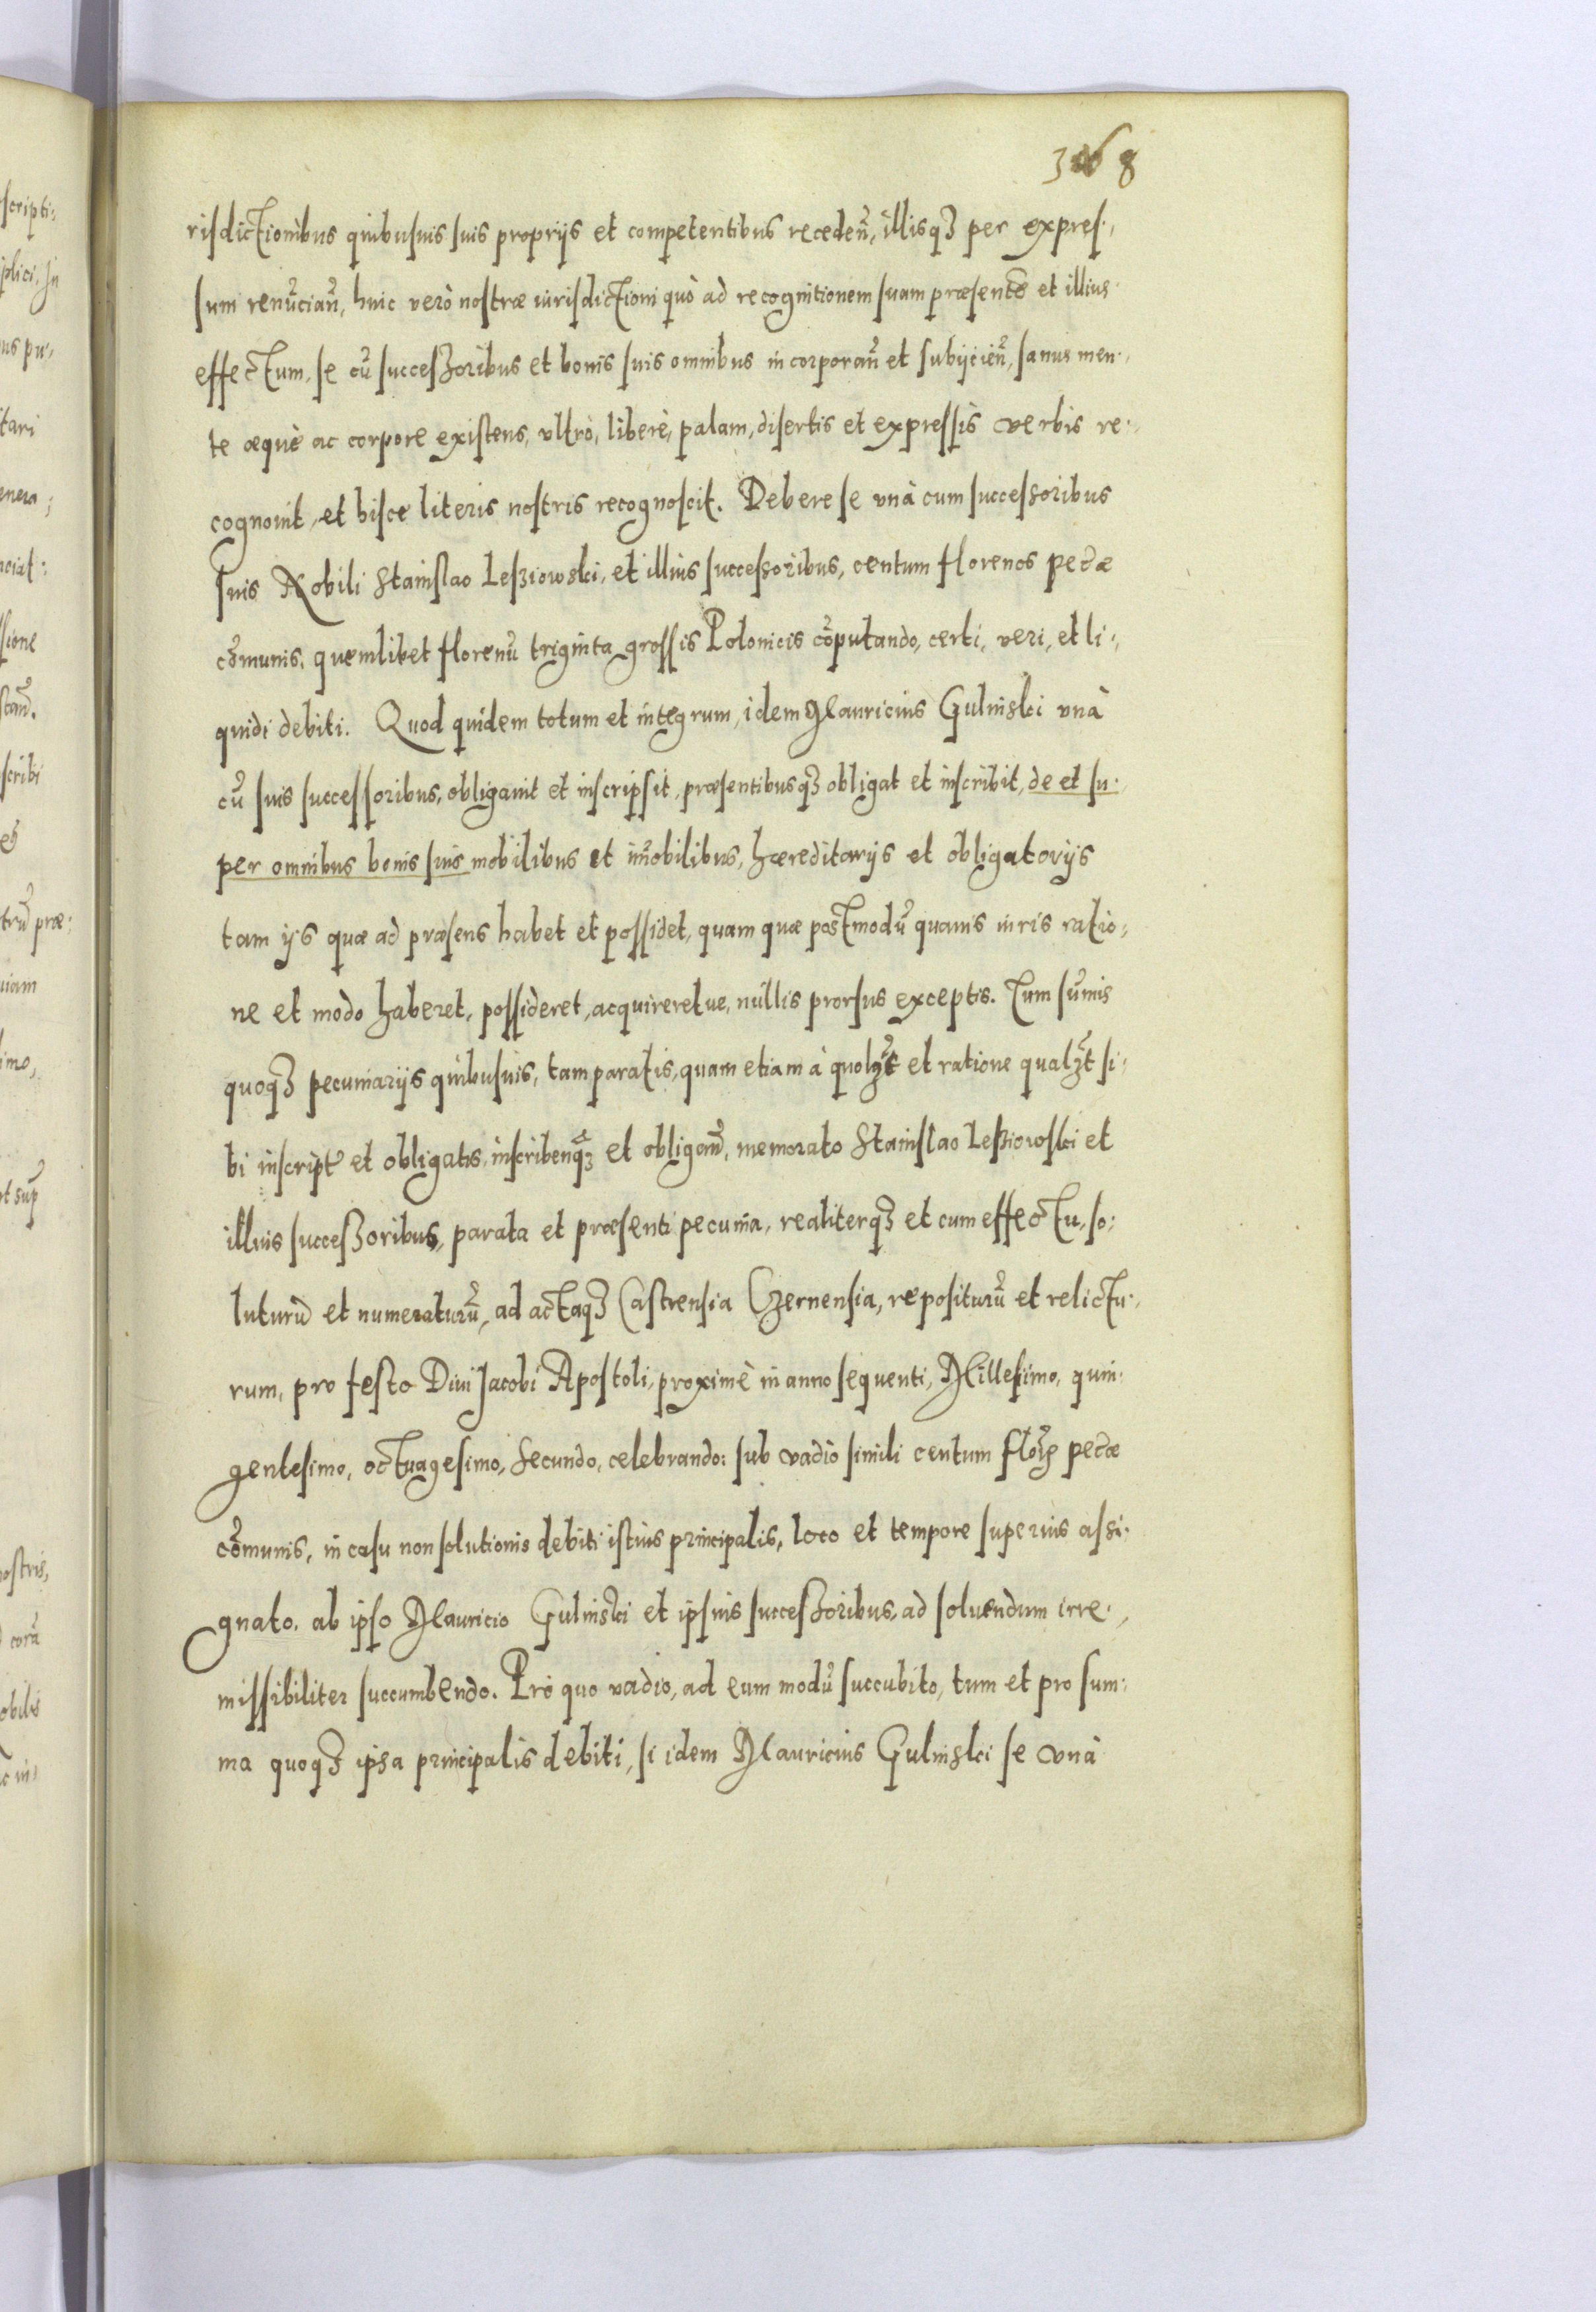 368
risdictionibus quibusuis suis proprijs et competentibus recedeñ, illisqꝫ per expres.,
sum renũciañ, huic verò nostræ iurisdictioni quò ad recognitionem suam præsentẽ et illius
effectum, se cũ successoribus et bonis suis omnibus incorporañ et subijcieñ, sanus men.,
te æquè ac corpore existens, vltrò, liberè, palam, disertis et expressis verbis re.,
cognouit, et hisce literis nostris recognoscit. Debere se vnà cum successoribus
suis Nobili Stanislao Leßiowski, et illius successoribus, centum florenos pecũæ
cõmunis, quemlibet florenũ triginta grossis Polonicis cõputando, certi, veri, et li.,
quidi debiti. Quod quidem totum et integrum, idem Mauricius Gulinski vnà
cũ suis successoribus, obligauit et inscripsit, præsentibusqꝫ obligat et inscribit, de et su.,
per omnibus bonis suis mobilibus et im̃obilibus, hæreditarijs et obligatorijs
tam ijs quæ ad præsens habet et possidet, quam quæ postmodũ quauis iuris ratio,
ne et modo haberet, possideret, acquireretue, nullis prorsus exceptis. Tum sum̃is
quoqꝫ pecuniarijs quibusuis, tam paratis, quam etiam à quolꝫt et ratione qualꝫt si.
bi inscript̃ et obligatis, inscribenqꝫ et obligañ, memorato Stanislao Leßiowski et
illius successoribus, parata et præsenti pecunia, realiterqꝫ et cum effectu, so:
luturũ et numeraturũ, ad actaqꝫ Castrensia Czernensia, repositurũ et relictu.,
rum, pro festo Diui Jacobi Apostoli, proximè in anno sequenti, Millesimo, quin.
gentesimo, octuagesimo, Secundo, celebrando: sub vadio simili centum floꝝ pecũæ
cõmunis, in casu non solutionis debiti istius principalis, loco et tempore superius assi.
gnato, ab ipso Mauricio Gulinski et ipsius successoribus, ad soluendum irre.,
missibiliter succumbendo. Prò quo vadio, ad eum modũ succubito, tum et pro sum.
ma quoqꝫ ipsa principalis debiti, si idem Mauricius Gulinski se vnà